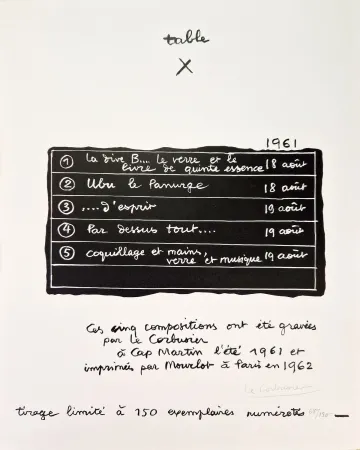 table
X
1961
① la dive B.... le verre et le
livre de quinte essence 18 août
② Ubu le Panurge 18 août
③ ....d'esprit 19 août
④ Par dessus tout.... 19 août
⑤ coquillage et mains,
verre et musique 19 août
Ces cinq compositions ont été gravées
par Le Corbusier
à Cap Martin l'été 1961 et
imprimées par Mourlot à Paris en 1962
Le Corbusier
tirage limité à 150 exemplaires numérotés